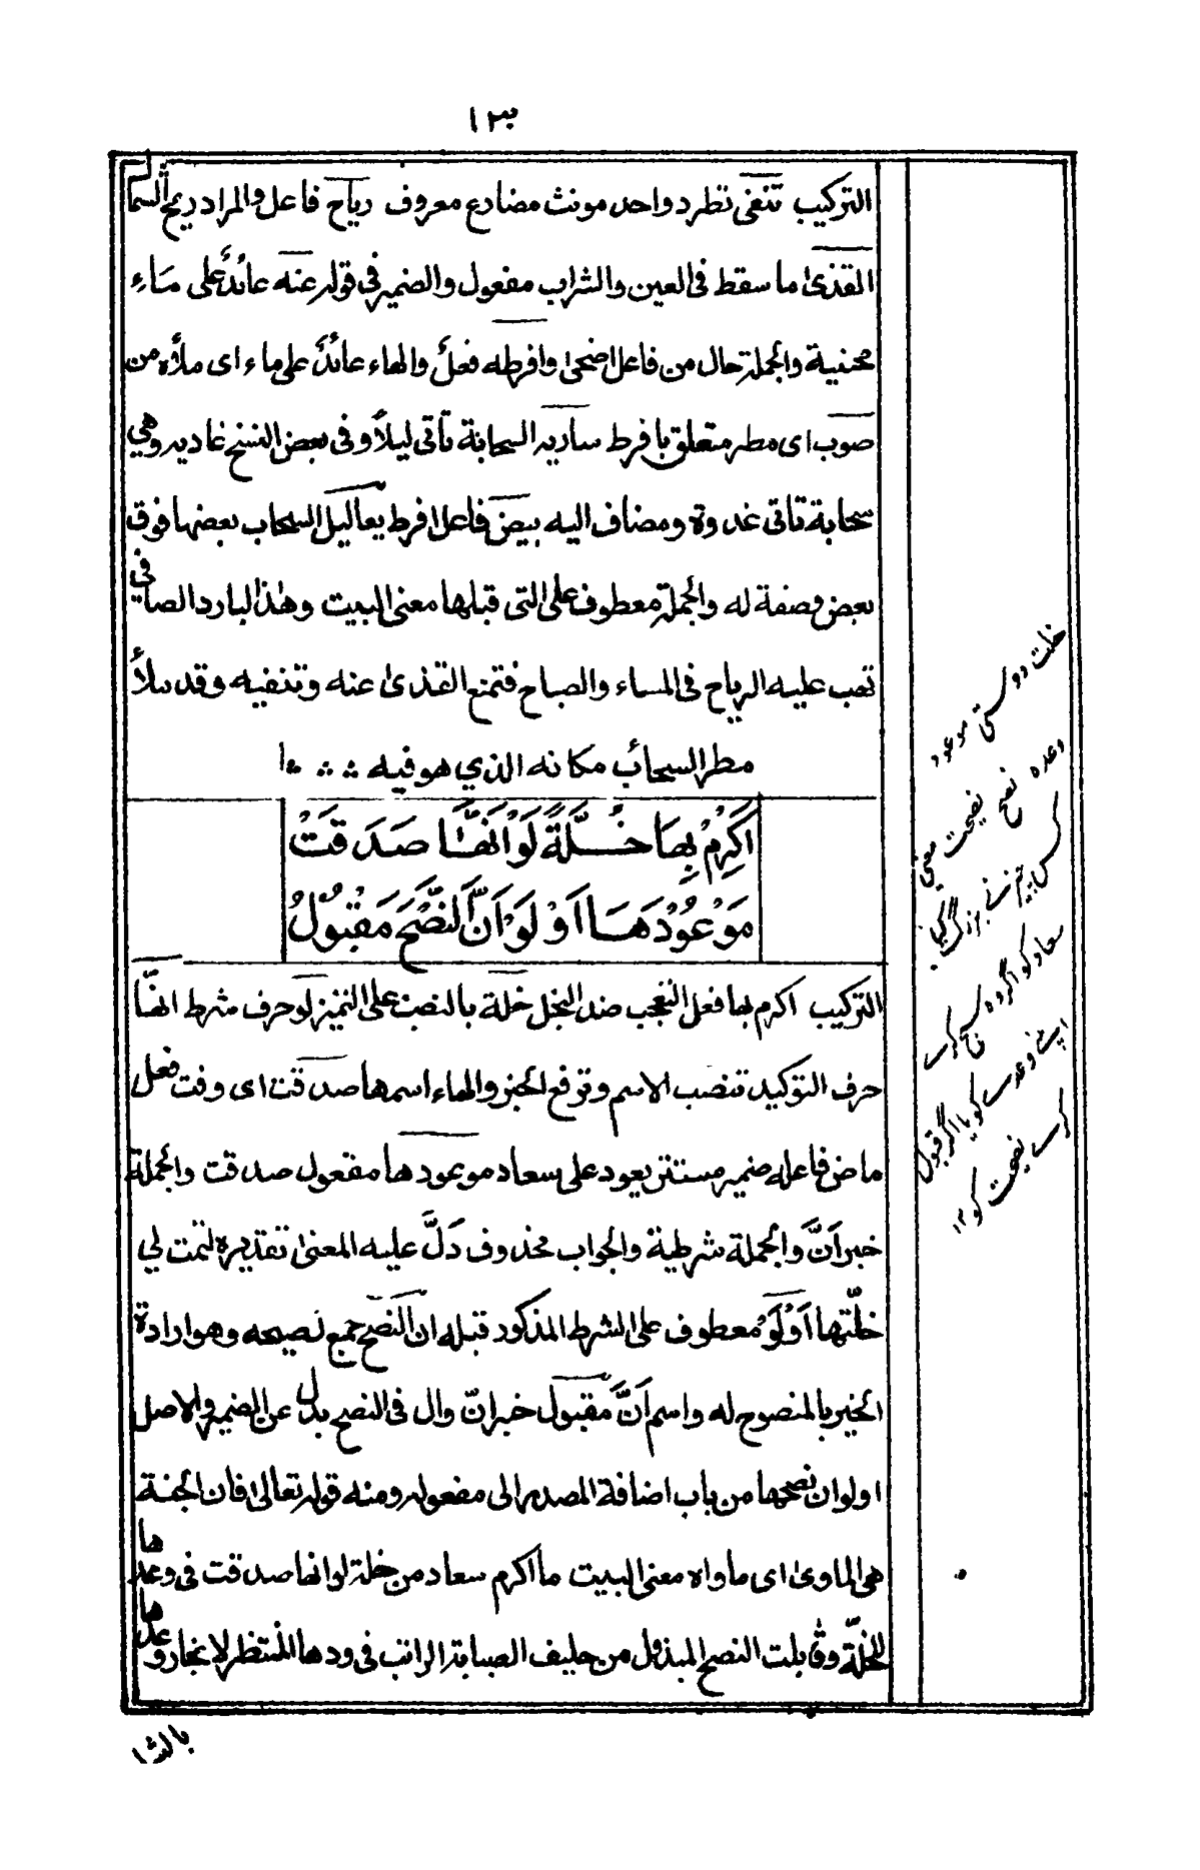 ١٣
التركيب تنفى تطرد واحد مونث مضارع معروف رياح فاعل والمراد ريح الشمال
القذى ما سقط فى العين والشراب مفعول والضمير فى قوله عنه عائد على ماء
محنية والجملة حال من فاعل اضحى وافرطه فعل والهاء عائد على ماء اى ملأه من
صوب اى مطر متعلق بافرط سارية السحابة تأتى ليلاً وفى بعض النسخ غادية وهي
سحابة تاتى غدوة ومضاف اليه بيض فاعل افرط يعاليل السحاب بعضها فوق
بعض وصفة له والجملة معطوف على التى قبلها معنى البيت وهذا البارد الصافي
تهب عليه الرياح فى المساء والصباح فتمنع القذى عنه وتنفيه وقد ملأ
مطر السحائب مكانه الذي هو فيه
اَكْرِمْ بِهَا خُلَّةً لَوْ اَنَّهَا صَدَقَتْ
مَوْعُوْدَهَا اَوْ لَوْ اَنَّ النُّصْحَ مَقْبُوْلُ
التركيب اكرم بها فعل التعجب ضد البخل خلة بالنصب على التميز لو حرف شرط انها
حرف التوكيد تنصب الاسم وترفع الخبر والهاء اسمها صدقت اى وفت فعل
ماض فاعله ضمير مستتر يعود على سعاد موعودها مفعول صدقت والجملة
خبر اَنَّ والجملة شرطية والجواب محذوف دَلَّ عليه المعنى تقديره لتمت لي
خلّتها اَوْ لَوْ معطوف على الشرط المذكور قبله ان النصح جمع نصيحه وهو ارادة
الخير بالمنصوح له واسم اَنَّ مقبول خبر انّ وال فى النصح بدل عن الضمير والاصل
او لو ان نصحها من باب اضافة المصدر الى مفعوله ومنه قوله تعالى فان الجنة
هى الماوى اى ماواه معنى البيت ما اكرم سعاد من خلة لو انها صدقت فى وعدها
الخلّة وقابلت النصح المبذول من حليف الصبابة الراتب فى ودها المنتظر لانجاز وعدها
خلت دوستى موعود
وعده نصح نصيحت معنى
كس چيز نے بزرگ كيا
سعاد كو اگر وه سچ كرے
اپنے وعدے كو يا اگر قبول
كرے نصيحت كو ١٢
بالشا